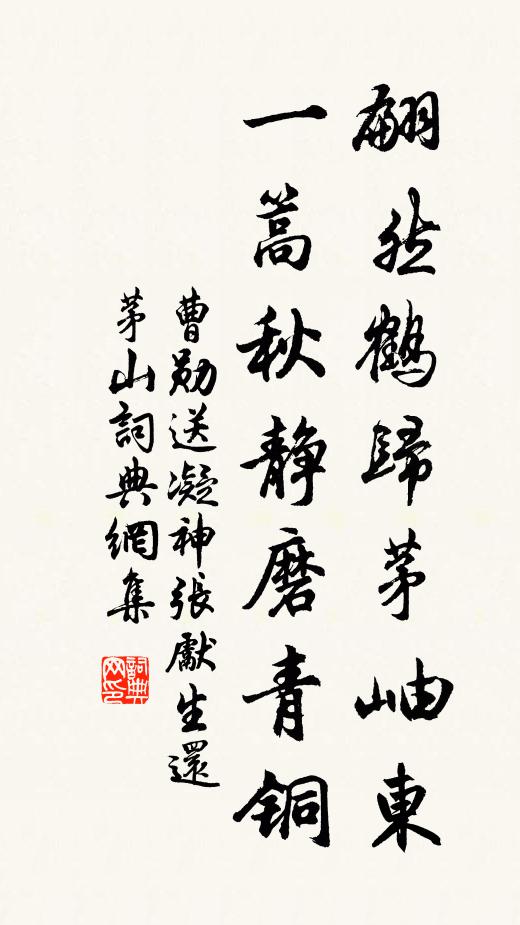 翩然鶴歸茅岫東
一篙秋靜磨青銅
曹勛送凝神張獻生還
茅山詞典網集
詞典網印